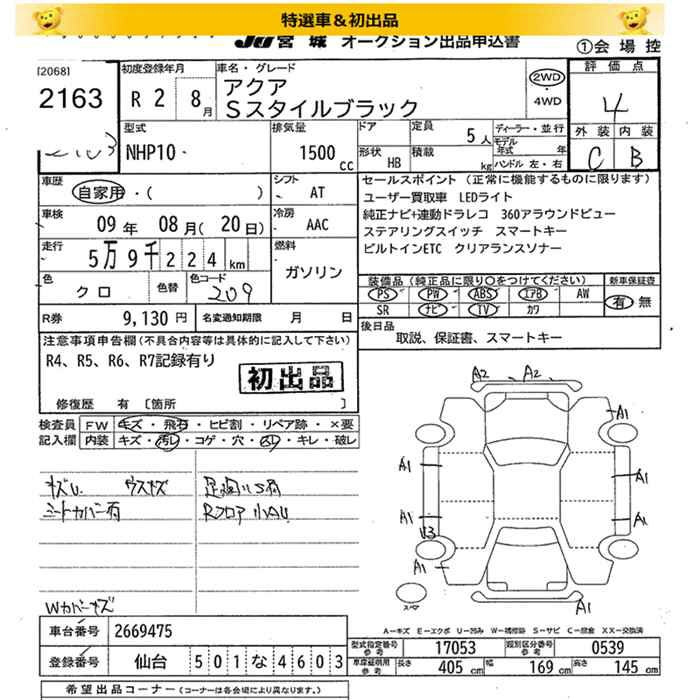 特選車＆初出品
JU 宮城 オークション出品申込書
①会場控
[2068]
2163
初度登録年月
R 2 8月
車名・グレード
アクア
Sスタイルブラック
2WD
・4WD
評価点
4
外装 内装
C B
型式
NHP10
排気量
1500 cc
ドア
定員 5人
形状 HB
積載 kg
ディーラー・並行
モデル年式 年
ハンドル 左・右
車歴
自家用・( )
シフト
AT
車検
09年 08月(20日)
冷房
AAC
走行
5万9千224km
燃料
ガソリン
色
クロ
色替
色コード
209
R券 9,130円
名変通知期限 月 日
セールスポイント（正常に機能するものに限ります）
ユーザー買取車 LEDライト
純正ナビ+連動ドラレコ 360アラウンドビュー
ステアリングスイッチ スマートキー
ビルトインETC クリアランスソナー
装備品（純正品に限り○をつけてください）
新車保証書
PS PW ABS エアB AW
SR ナビ TV カワ
有 無
後日品
取説、保証書、スマートキー
注意事項申告欄（不具合内容等は具体的に記入して下さい）
R4、R5、R6、R7記録有り
初出品
修復歴 有 [箇所 ]
検査員記入欄
FW キズ・飛石・ヒビ割・リペア跡・×要
内装 キズ・汚レ・コゲ・穴・スレ・キレ・破レ
シートカバー有
Rフロア小AU
Wカバーキズ
A2 A2
A1
A1 A1
A1 A1
U3
A1 A1
A1
スペア
A－キズ E－エクボ U－凹み W－補修跡 S－サビ C－腐食 XX－交換済
車台番号 2669475
登録番号 仙台 501な4603
型式指定番号 参考 17053
類別区分番号 参考 0539
車庫証明用 参考 長さ 405cm 幅 169cm 高さ 145cm
希望出品コーナー（コーナーは各会場により異なります。）